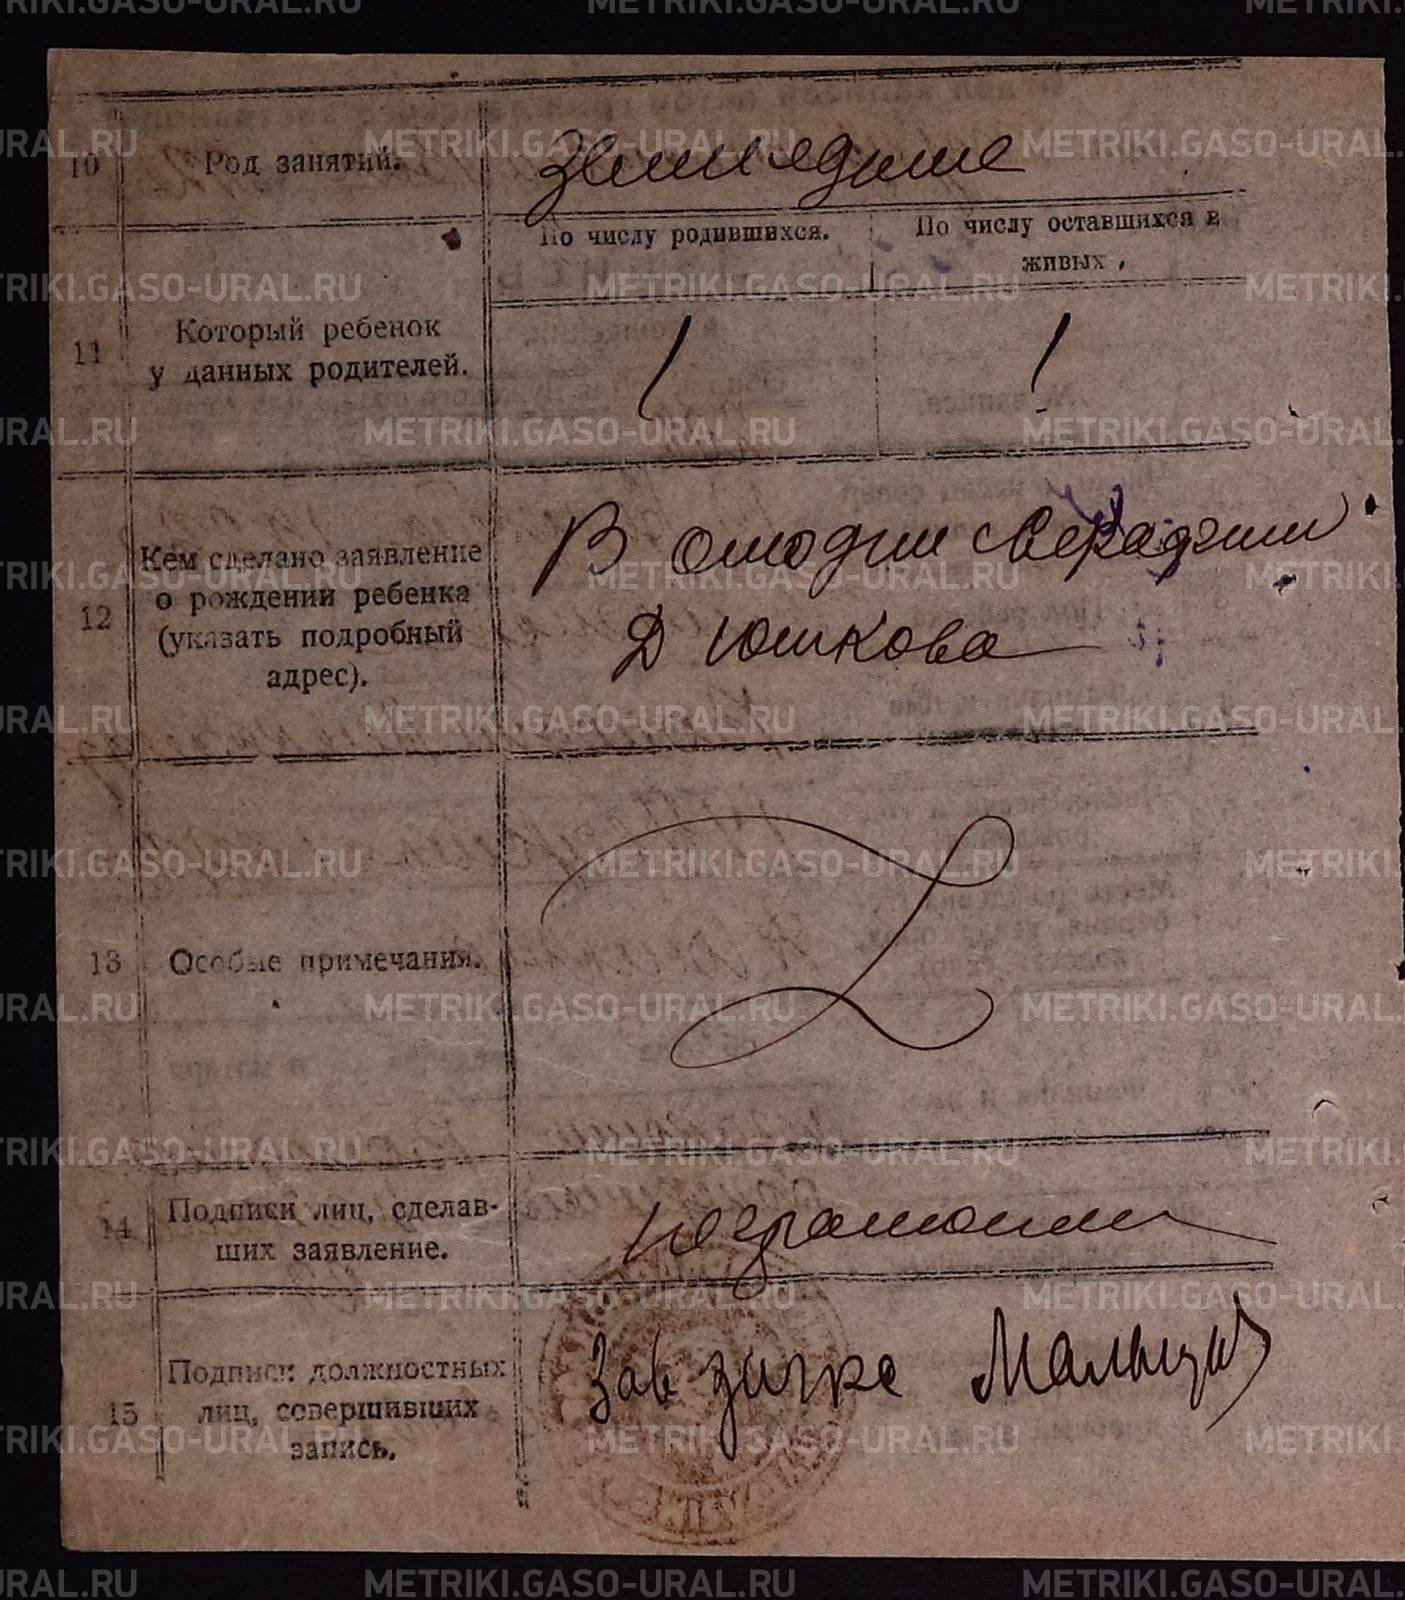 10 Род занятий. Земледелие
По числу родившихся. По числу оставшихся в
живых.
11 Который ребенок
у данных родителей. 1 1
12 Кем сделано заявление
о рождении ребенка
(указать подробный
адрес).
В
Д Юшкова
13 Особые примечания. Z
14 Подписи лиц, сделав-
ших заявление. неграмотен
15 Подписи должностных
лиц, совершивших
запись.
Зав загса Мальцев
METRIKI.GASO-URAL.RU